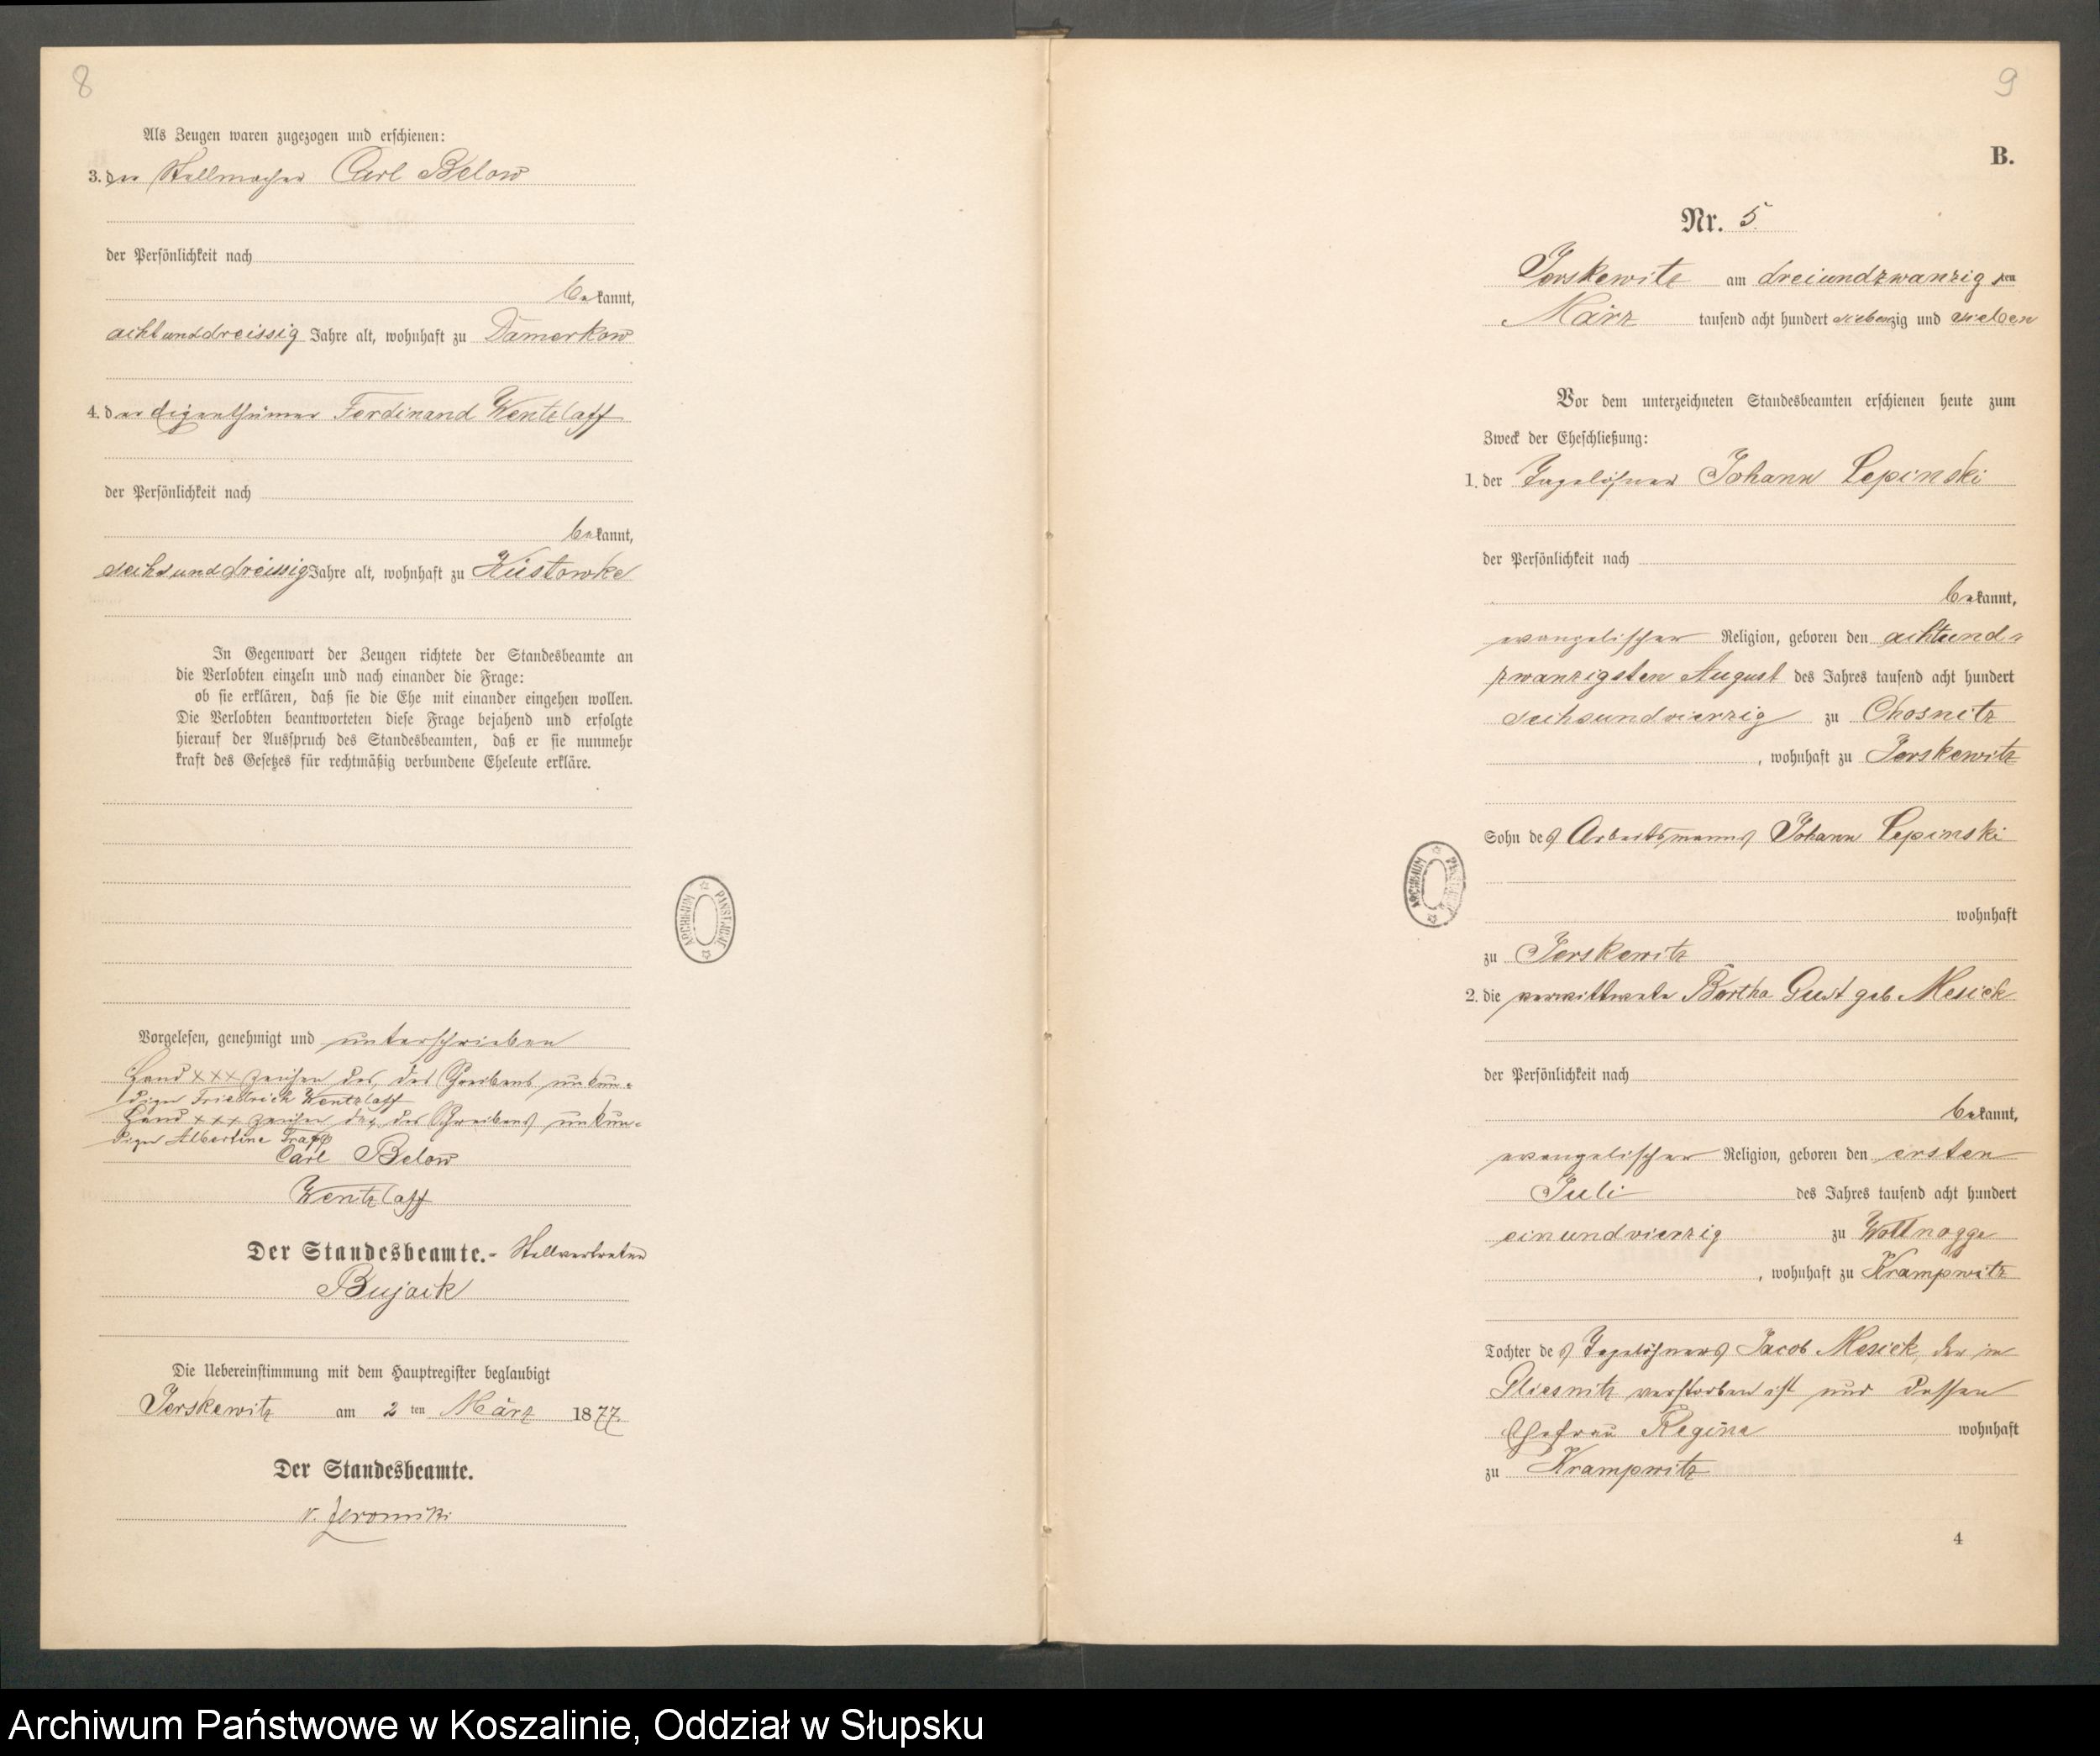 8
Als Zeugen waren zugezogen und erschienen:
3. der Stellmacher Carl Below
der Persönlichkeit nach
bekannt,
achtunddreissig Jahre alt, wohnhaft zu Damerkow
4. der Eigenthümer Ferdinand Wentzlaff
der Persönlichkeit nach
bekannt,
sechsunddreissig Jahre alt, wohnhaft zu Wüstowke
In Gegenwart der Zeugen richtete der Standesbeamte an
die Verlobten einzeln und nach einander die Frage:
ob sie erklären, daß sie die Ehe mit einander eingehen wollen.
Die Verlobten beantworteten diese Frage bejahend und erfolgte
hierauf der Ausspruch des Standesbeamten, daß er sie nunmehr
kraft des Gesetzes für rechtmäßig verbundene Eheleute erkläre.
Vorgelesen, genehmigt und unterschrieben
Hand xxx zeichen des, des Schreibens unkun-
digen Friedrich Wentzlaff
Hand xxx zeichen der des Schreibens unkun-
digen Albertine
Carl Below
Wentzlaff
Der Standesbeamte.- Stellvertreter
Bujack
Die Uebereinstimmung mit dem Hauptregister beglaubigt
Jerskewitz am 2 ten März 1877.
Der Standesbeamte.
v.
ARCHIWUM PAŃSTWOWE
9
B.
Nr. 5.
Jerskewitz am dreiundzwanzig sten
März tausend acht hundert siebenzig und sieben
Vor dem unterzeichneten Standesbeamten erschienen heute zum
Zweck der Eheschließung:
1. der Tagelöhner Johann Lepinski
der Persönlichkeit nach
bekannt,
evangelischer Religion, geboren den achtund-
zwanzigsten August des Jahres tausend acht hundert
sechsundvierzig zu Chosnitz
, wohnhaft zu Jerskewitz
Sohn des Arbeitsmanns Johann Lepinski
wohnhaft
zu Jerskewitz
2. die verwittwete Bertha Gust geb. Mesick
der Persönlichkeit nach
bekannt,
evangelischer Religion, geboren den ersten
Juli des Jahres tausend acht hundert
einundvierzig zu Wottnogge
, wohnhaft zu Krampwitz
Tochter des Tagelöhners Jacob Mesick, der in
Gliesnitz verstorben ist und dessen
Ehefrau Regine wohnhaft
zu Krampwitz
4
ARCHIWUM PAŃSTWOWE
Archiwum Państwowe w Koszalinie, Oddział w Słupsku